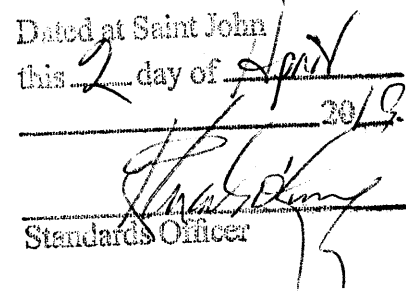 Dated at Saint John
this 2 day of April
20
Standards Officer